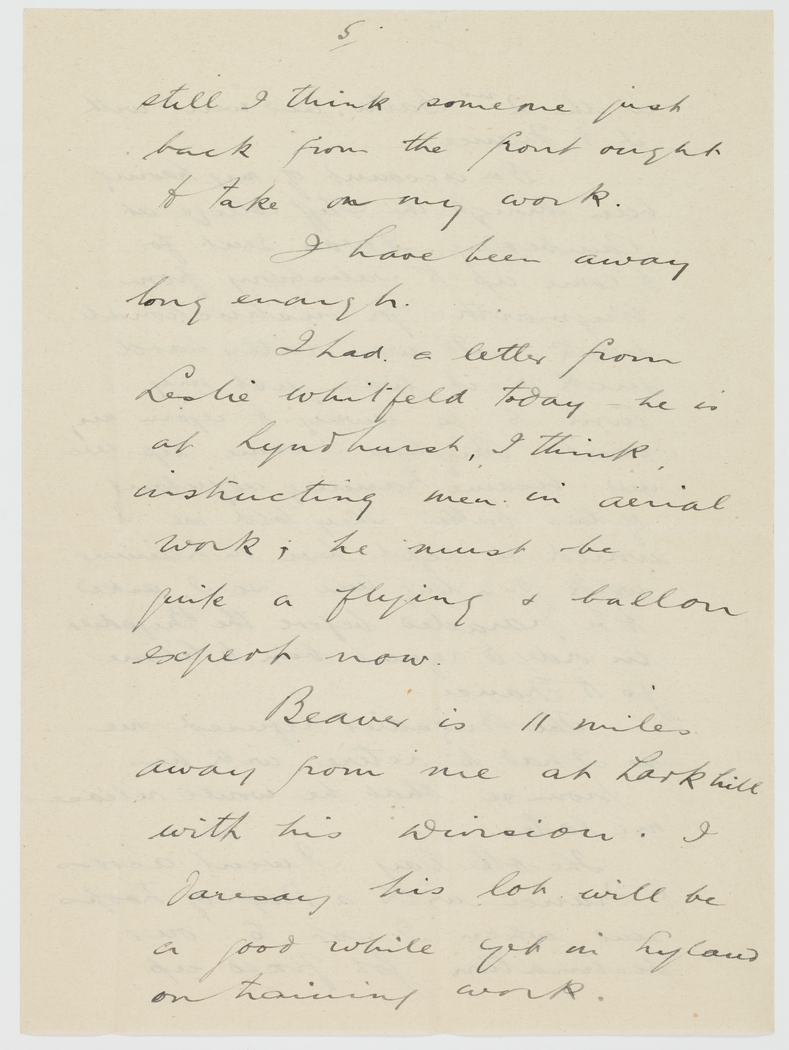 5
still I think someone just
back from the front ought
to take on my work.
I have been away
long enough.
I had a letter from
Leslie Whitfeld today - he is
at Lyndhurst, I think,
instructing men in aerial
work; he must be
quite a flying & balloon
expert now.
Beaver is 11 miles
away from me at Larkhill
with his Division. I
daresay his lot will be
a good while yet in England
on training work.